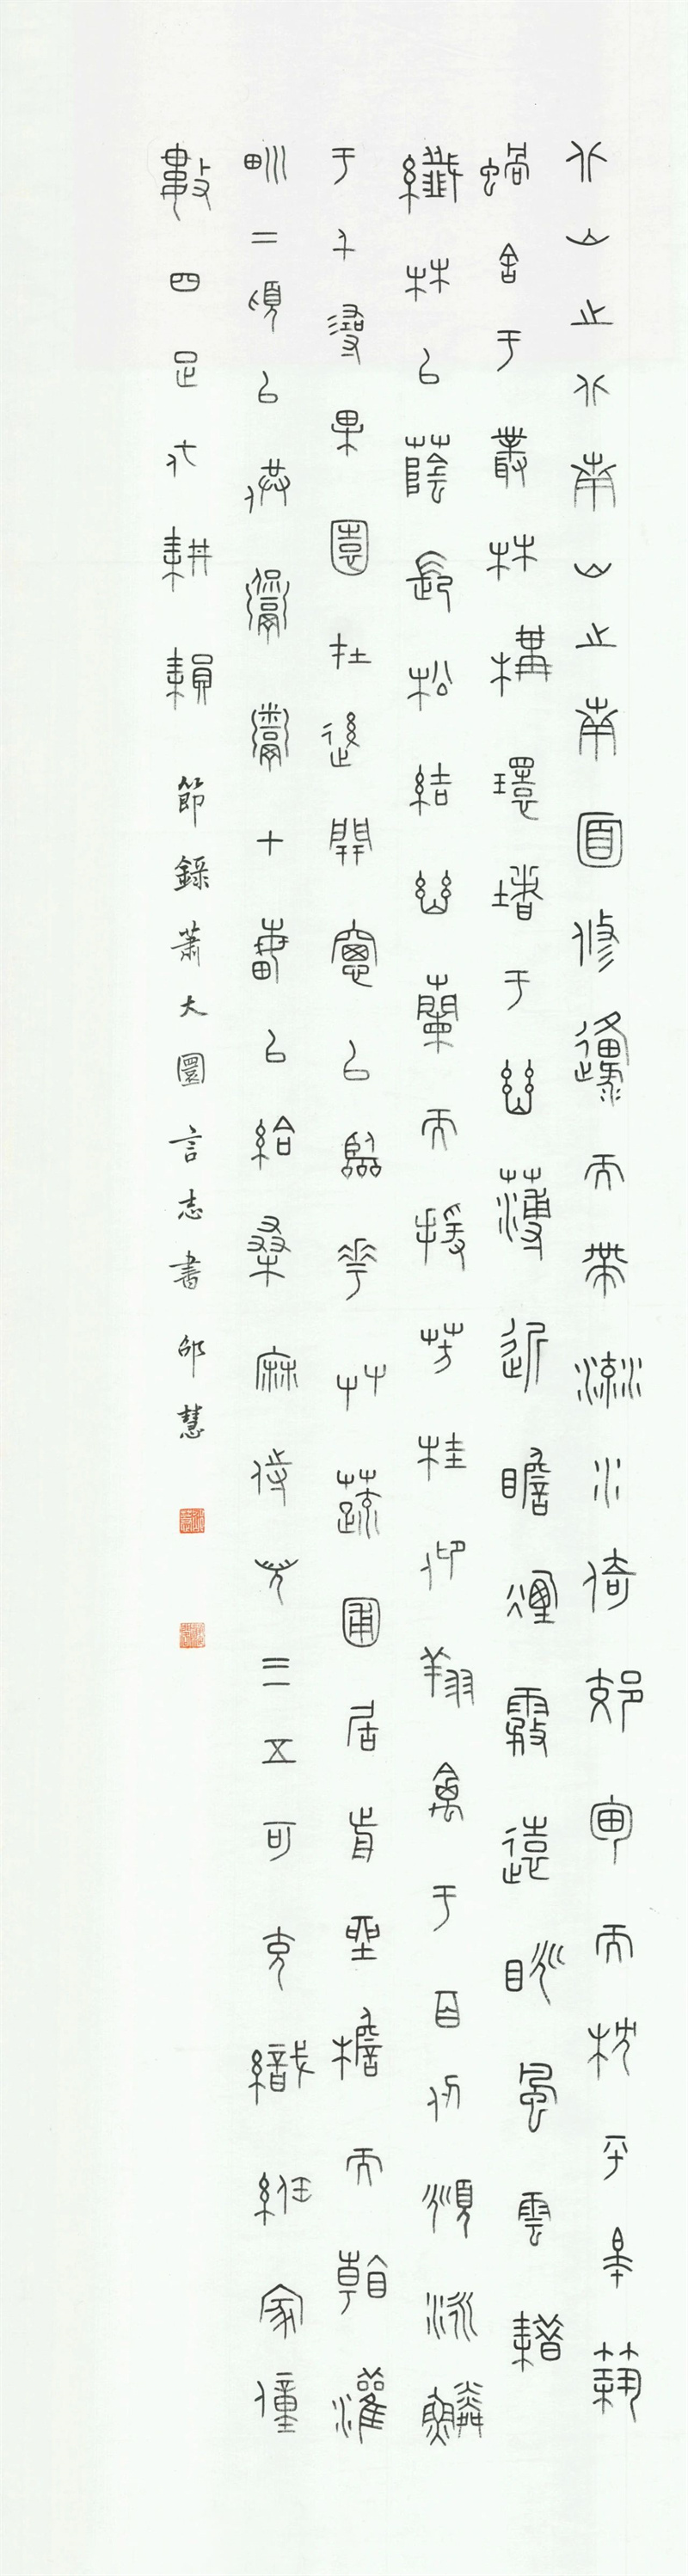 北山之北南山之南面修邍而帶流水倚郊甸而枕平皋築
蝸舍于叢林構環堵于幽薄近瞻煙霧遠眺風雲藉
纖林以蔭長松結幽蘭而援芳桂仰翔禽于百仞俯泳鱗
于千尋果園在後開窗以臨花艸蔬圃居前坐檐而看灌
甽二頃以供饘鬻十畝以給桑麻侍兒三五可充織紝家僮
數四足代耕耘 節錄蕭大圜言志書 邵慧